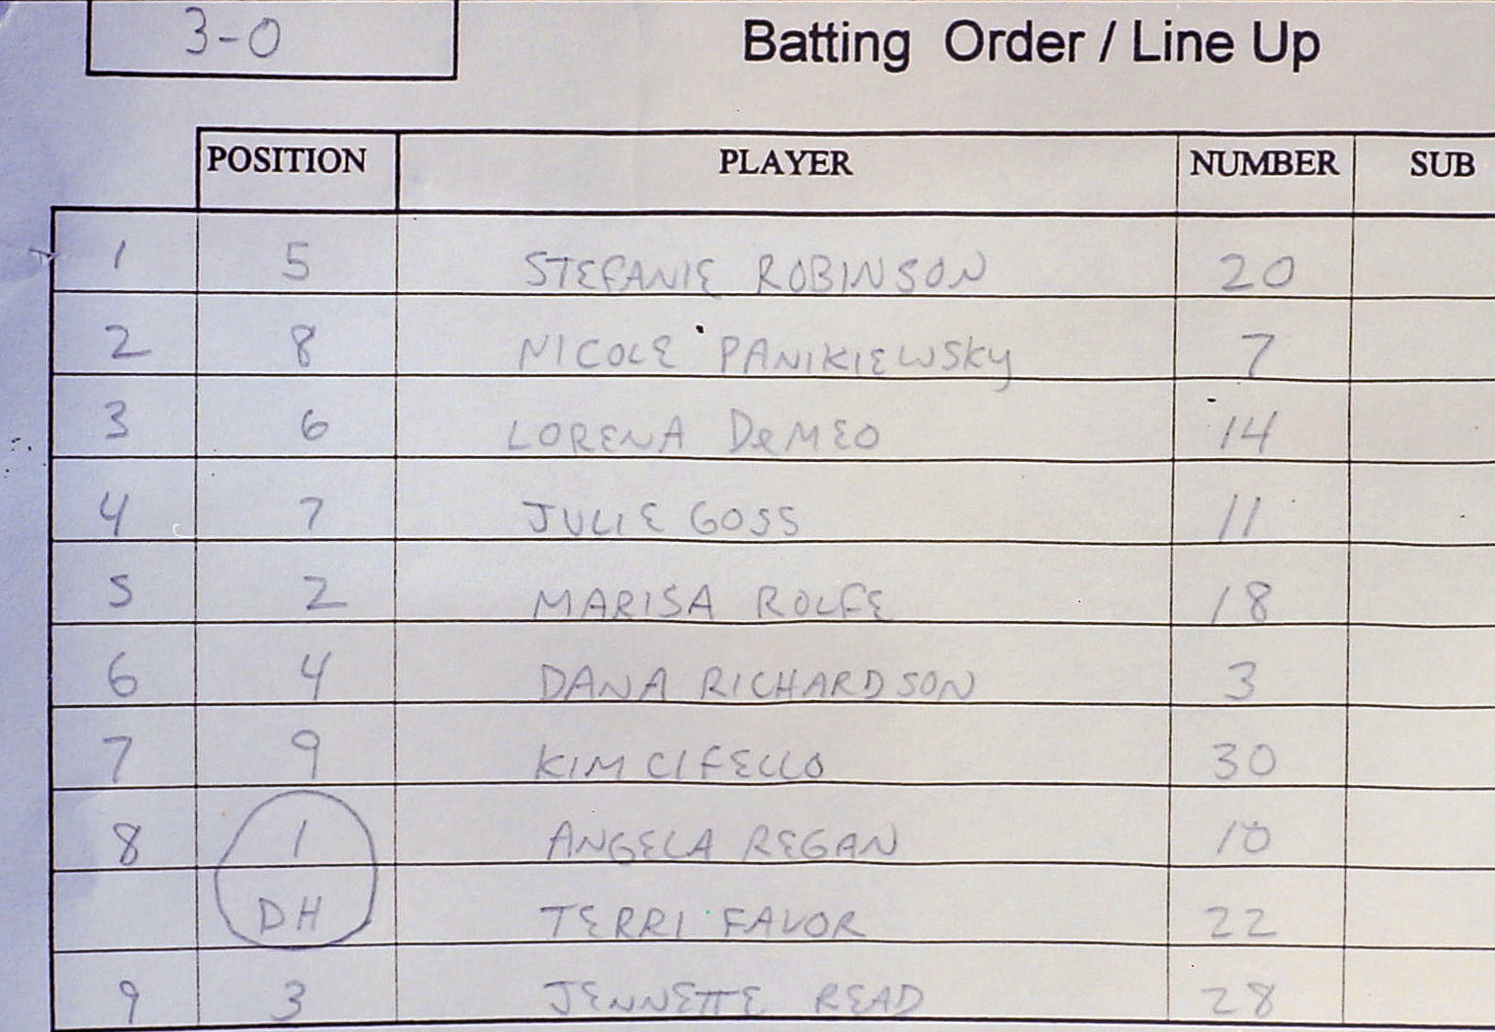 3-0
Batting Order / Line Up
POSITION PLAYER NUMBER SUB
1 5 STEFANIE ROBINSON 20
2 8 NICOLE PANIKIEWSKY 7
3 6 LORENA DeMEO 14
4 7 JULIE GOSS 11
5 2 MARISA ROLFE 18
6 4 DANA RICHARDSON 3
7 9 KIM CIFELLO 30
8 1 ANGELA REGAN 10
DH TERRI FAVOR 22
9 3 JENNETTE READ 28